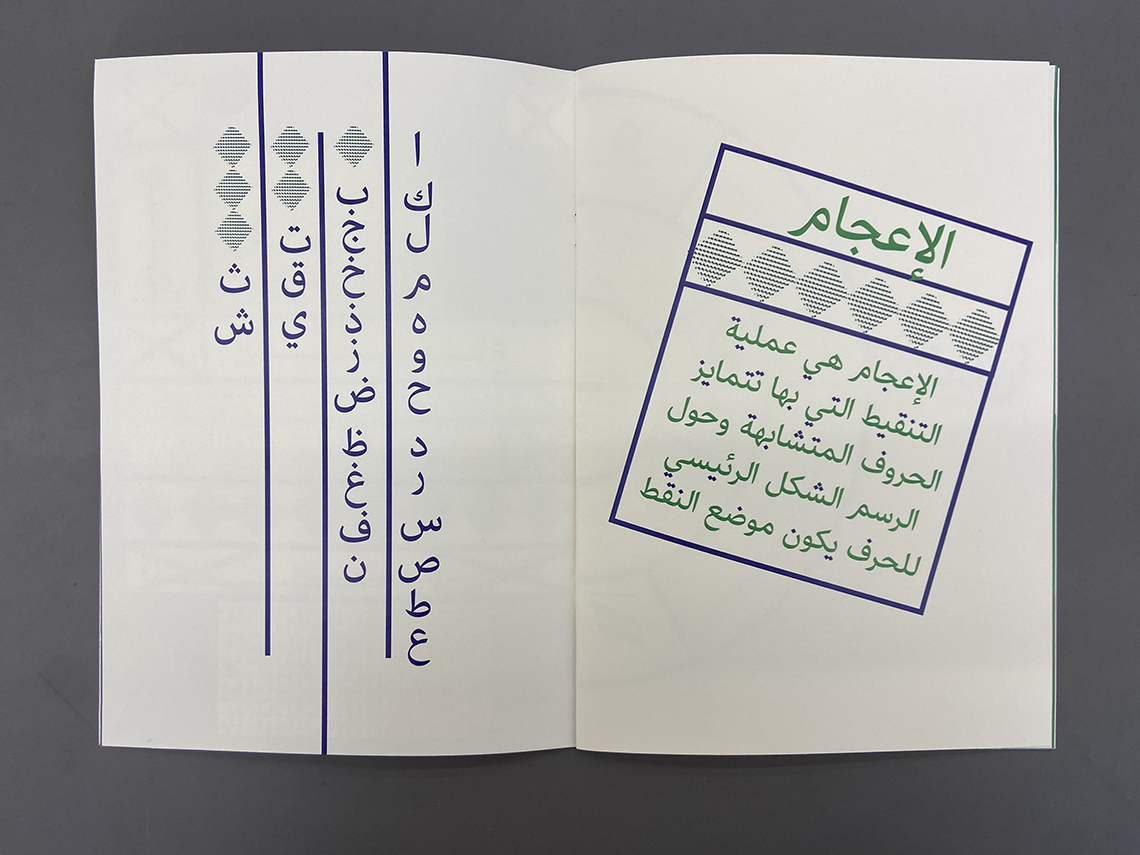 ا
ك
ل
م
ه
و
ح
د
ر
س
ص
ط
ع
ب
ج
خ
ذ
ز
ض
ظ
غ
ف
ن
ت
ق
ي
ث
ش
الإعجام
الإعجام هي عملية
التنقيط التي بها تتمايز
الحروف المتشابهة وحول
الرسم الشكل الرئيسي
للحرف يكون موضع النقط